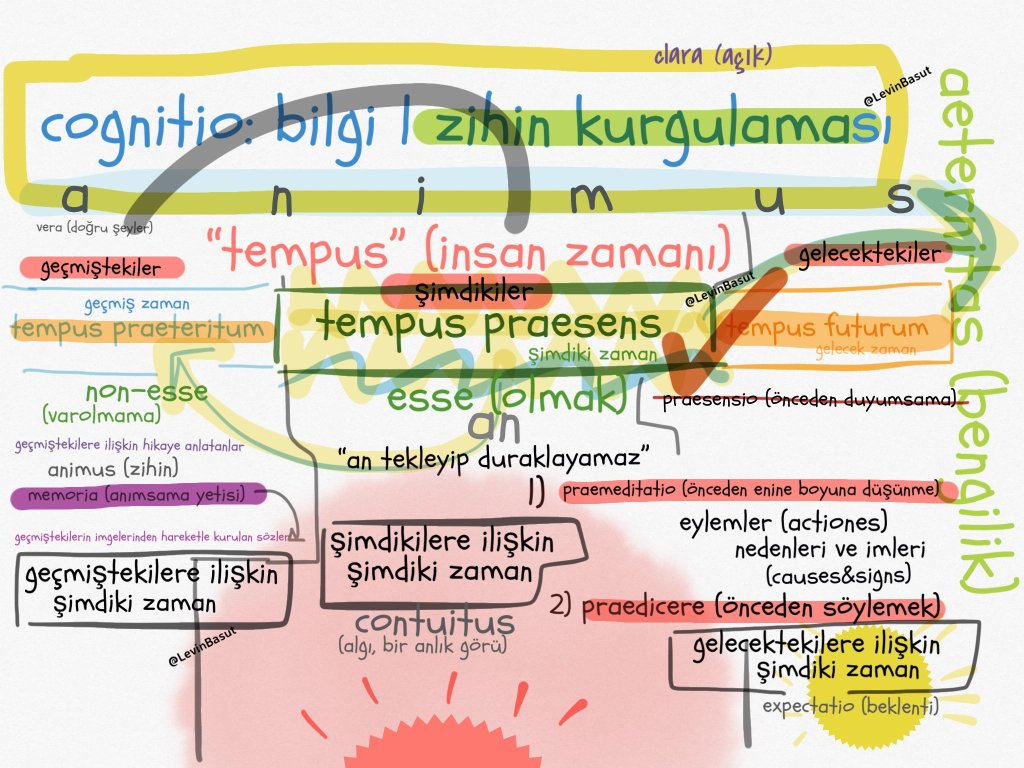 clara (açık)
@LevinBasut
cognitio: bilgi | zihin kurgulaması
a n i m u s
aeternitas (bengilik)
vera (doğru şeyler)
"tempus" (insan zamanı)
geçmiştekiler
gelecektekiler
şimdikiler
@LevinBasut
geçmiş zaman
tempus praeteritum
tempus praesens
şimdiki zaman
tempus futurum
gelecek zaman
non-esse
(varolmama)
esse (olmak)
praesensio (önceden duyumsama)
an
geçmiştekilere ilişkin hikaye anlatanlar
animus (zihin)
"an tekleyip duraklayamaz"
memoria (anımsama yetisi)
1) praemeditatio (önceden enine boyuna düşünme)
eylemler (actiones)
nedenleri ve imleri
(causes&signs)
geçmiştekilerin imgelerinden hareketle kurulan sözler
geçmiştekilere ilişkin
şimdiki zaman
şimdikilere ilişkin
şimdiki zaman
contuitus
(algı, bir anlık görü)
2) praedicere (önceden söylemek)
gelecektekilere ilişkin
şimdiki zaman
expectatio (beklenti)
@LevinBasut